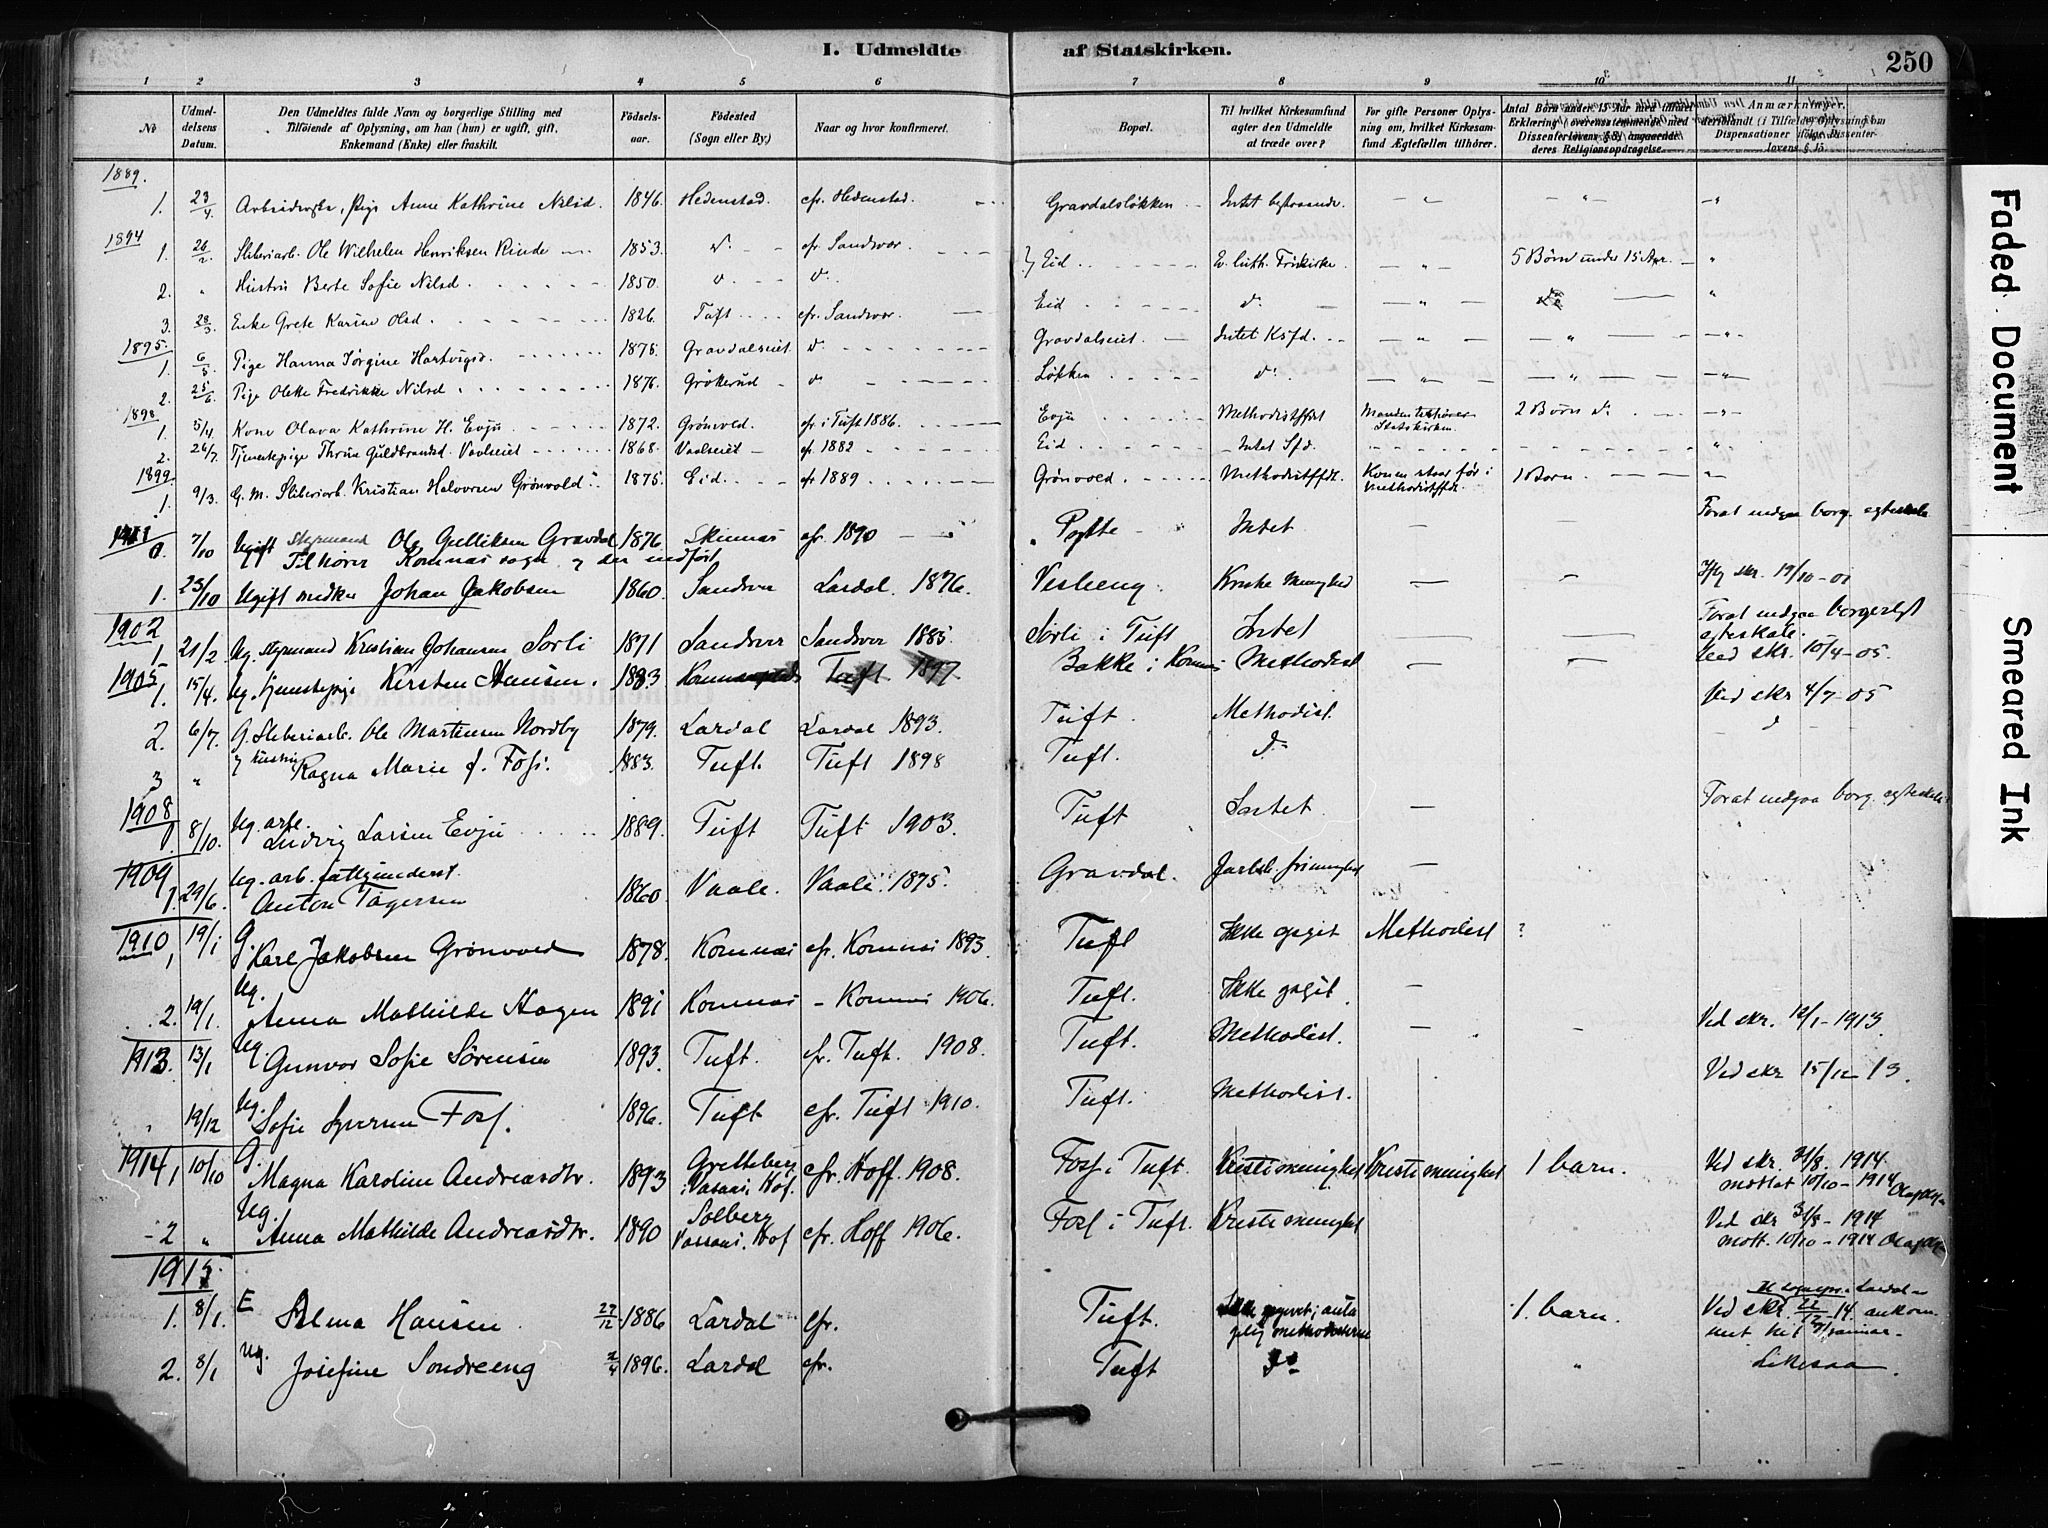 I. Udmeldte af Statskirken.
250
1 2 3 4 5 6 7 8 9 10 11
No
Udmeldelsens Datum.
Den Udmeldtes fulde Navn og borgerlige Stilling med Tilföiende af Oplysning, om han (hun) er ugift, gift, Enkemand (Enke) eller fraskilt.
Födselsaar.
Födested (Sogn eller By).
Naar og hvor konfirmeret.
Bopæl.
Til hvilket Kirkesamfund agter den Udmeldte at træde over?
For gifte Personer Oplysning om, hvilket Kirkesamfund Ægtefællen tilhörer.
Antal Børn under 15 Aar med tilhørende Erklæring (overensstemmende med Dissenterlovens § 8) angaaende deres Religionsopdragelse.
Anmærkninger,
deriblandt (i Tilfælde) Oplysning om Dispensationer ifølge Dissenterlovens § 15.
1889.
1. 23/4 Pige Anne Kathrine Nilsd. 1846. Hedenstad. cfr. Hedenstad. Gravdalsløkken Intet bestaaende. - " - - " - - " -
1894
1. 26/2 Sliberiarb. Ole Wilhelm Henriksen Rinde 1853. do cfr. Sandsvær. } Eid Ev. luth. Frikirke. - " - 5 Børn under 15 Aar. "
2. " Hustru Berte Sofie Nilsd. 1850. do do Eid do - " - do "
3. 28/3 Enke Grete Karine Olsd. 1826. Tuft cfr. Sandsvær. Gravdalseiet Intet Ksfd. - " - " - " -
1895.
1. 6/5 Pige Hanna Jörgine Hartvigsd. 1878. Gravdalseiet do Løkken do - " - " - " -
2. 25/6 Pige Oleke Fredrikke Nilsd 1876. Grøkerud do
1898
1. 5/4 Kone Olava Kathrine H. Evju 1872. Grønvold. cfr i Tuft 1886. Evju Methodistsfdt Manden tilhører Statskirken. 2 Børn do - " -
2. 26/7. Tjenestepige Thrine Guldbrandsd. Vaalseiet 1868. Vaalseiet cfr 1882 Eid Intet Sfd. "
1899.
1. 9/3. G. M. Sliberiarb. Kristian Halvorsen Grønvold 1875. Eid. cfr 1889 Grønvold. Methodistsfdt. Konen staar før i Methodistsfdt. 1 Barn. "
1901
0. 7/10 Ugift Styrmand Ole Gulliksen Gravdal 1876 Skinnæs cfr. 1890 " Pytte Intet - - Forat indgaa borg. egteskab
Tilhører Komnæs sogn og der indført
1. 23/10 Ugift Johan Jakobsen 1860. Sandsvær Lardal. 1876. Vesleeng. Menighed - - Iflg skr. 19/10-01
1902
1. 21/2 Ug. Styrmand Kristian Johansen Sørli 1871 Sandsvær Sandsvær 1885. Sørli i Tuft Intet - - Forat indgaa borgerligt egteskab.
1905
1. 15/4. Ug. tjenestepige Kirsten Hansen. 1883 Tuft 1897 Bakke i Komnæs Methodist - - Ved skr. 10/4-05.
2. 6/7. G. Sliberiarb. Ole Martinsen Nordby 1879. Lardal Lardal 1893. Tuft. Methodist. Ved skr 4/7-05
3 " og hustru Ragna Marie f. Foss. 1883. Tuft. Tuft 1898 Tuft. do do
1908
0. 8/10. Ug. arb. Ludvig Larsen Evju 1889. Tuft Tuft 1903. Tuft Intet - Forat indgaa borg. egteskab
1909
1. 29/6. Ug. arb. fattigunderst. Anton Tagersen 1860 Vaale. Vaale. 1875. Gravdal. Jarlsb. frimenighet -
1910
1 19/1 G. Karl Jakobsen Grønvold 1878. Komnæs cfr. Komnæs 1893 Tuft Ikke opgit Methodist ?
2. 19/1. Ug. Anna Mathilde Hagen 1891 Komnæs - Komnæs 1906. Tuft. Ikke opgit. -
1913. 13/1 Ug. Gunvor Sofie Sørensen 1893. Tuft. cfr. Tuft. 1908. Tuft. Methodist. - - Ved skr. 12/1-1913.
" 19/12 Ug. Sofie Foss. 1896. Tuft cfr. Tuft 1910. Tuft. Methodist. Ved skr 15/12 13.
1914
1 10/10 G. Magna Karoline Andreasdtr. 1893 Gretteberg i Vasaas, Hof. cfr. Hoff. 1908. Foss i Tuft. Kristi menighet Kristi menighet 1 barn. Ved skr. 31/8. 1914. mottat 10/10-1914
2 " Ug. Anna Mathilde Andreasdtr. 1890 Solberg Vassaas. Hof cfr. Hoff 1906. Foss i Tuft. Kristi menighet Ved skr 31/8-1914 mott. 10/10-1914
1915
1. 8/1. E Selma Hansen 27/12 1886 Lardal cfr. Tuft. Ikke opgivet; antagelig methodisterne 1. barn. til sognepr. i Lardal Ved skr. 22/12 14. ankommet hit 7/1 januar
2. 8/1 Ug. Josefine Sondreeng 2/4 1896. Lardal cfr. Tuft do " Likesaa.
Faded Document
Smeared Ink